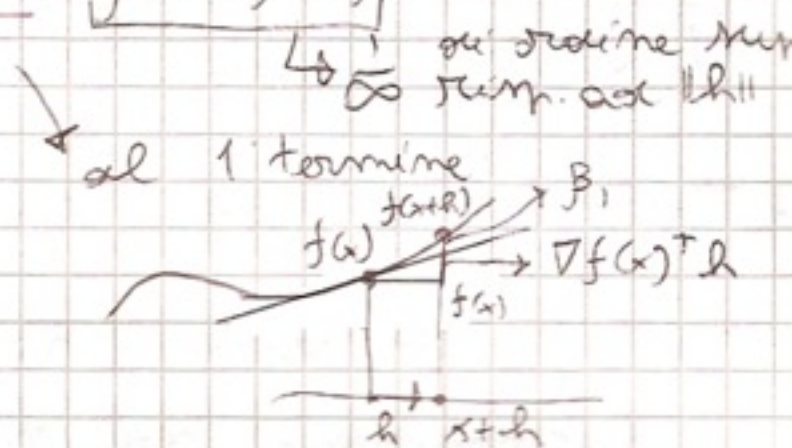 ↳ 1/∞ di ordine sup
risp. ad ||h||
al 1° termine
f(x+h)
β₁
f(x)
∇f(x)ᵀh
f(x)
h x+h